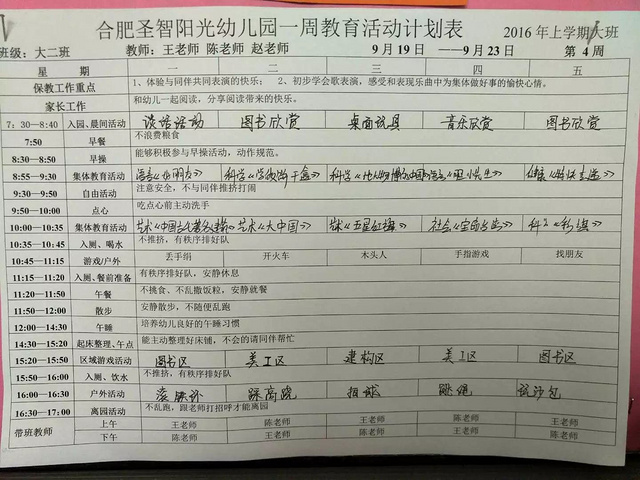 合肥圣智阳光幼儿园一周教育活动计划表
2016年上学期大班
班级：大二班 教师：王老师 陈老师 赵老师 9月19日 ——9月23日 第 4 周
星 期 一 二 三 四 五
保教工作重点 1、体验与同伴共同表演的快乐； 2、初步学会歌表演，感受和表现乐曲中为集体做好事的愉快心情。
家长工作 和幼儿一起阅读，分享阅读带来的快乐。
7：30—8:40 入园、晨间活动 谈话活动 图书欣赏 桌面玩具 音乐欣赏 图书欣赏
7:50 早餐 不浪费粮食
8:30—8:50 早操 能够积极参与早操活动，动作规范。
8:55—9:30 集体教育活动 科学 科学
9:30—9:50 自由活动 注意安全，不与同伴推挤打闹
9:50—10:00 点心 吃点心前主动洗手
10:00—10:35 集体教育活动 艺术《中国 艺术《大中国》 艺术《五星红旗》 社会
10:35—10:45 入厕、喝水 不推挤，有秩序排好队
10:45—11:15 游戏/户外 丢手绢 开火车 木头人 手指游戏 找朋友
11:15—11:20 入厕、餐前准备 有秩序排好队，安静休息
11:20—11:50 午餐 不挑食、不乱撒饭粒，安静就餐
11:50—12:00 散步 安静散步，不随便乱跑
12:00—14:30 午睡 培养幼儿良好的午睡习惯
14:30—15:20 起床整理、午点 能主动整理好床铺，不会的请同伴帮忙
15:20—15:50 区域游戏活动 图书区 美工区 建构区 美工区 图书区
15:50—16:00 入厕、饮水 不推挤，有秩序排好队
16:00—16:30 户外活动 滚铁环 踩高跷 拍球 跳绳 玩沙包
16:30—17:00 离园活动 不乱跑，跟老师打招呼才能离园
带班教师 上午 王老师 陈老师 王老师 陈老师 王老师
下午 陈老师 王老师 陈老师 王老师 陈老师